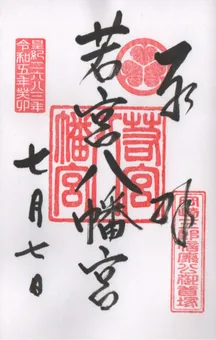 奉拝
若宮八幡宮
七月七日
皇紀二六八三年
令和五年癸卯
若宮
八幡宮
岡崎三郎信康公御首塚